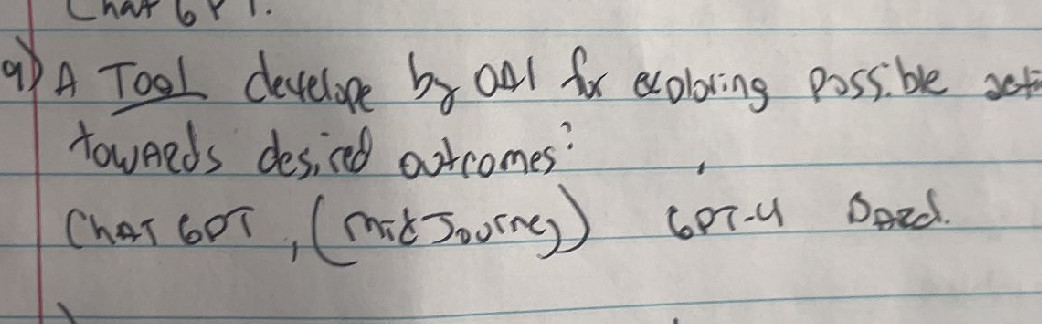 Chat GPT.
9) A Tool develope by OAI for exploring possible
towards desired outcomes?
Chat GPT, (mid Journey) GPT-4 Bard.